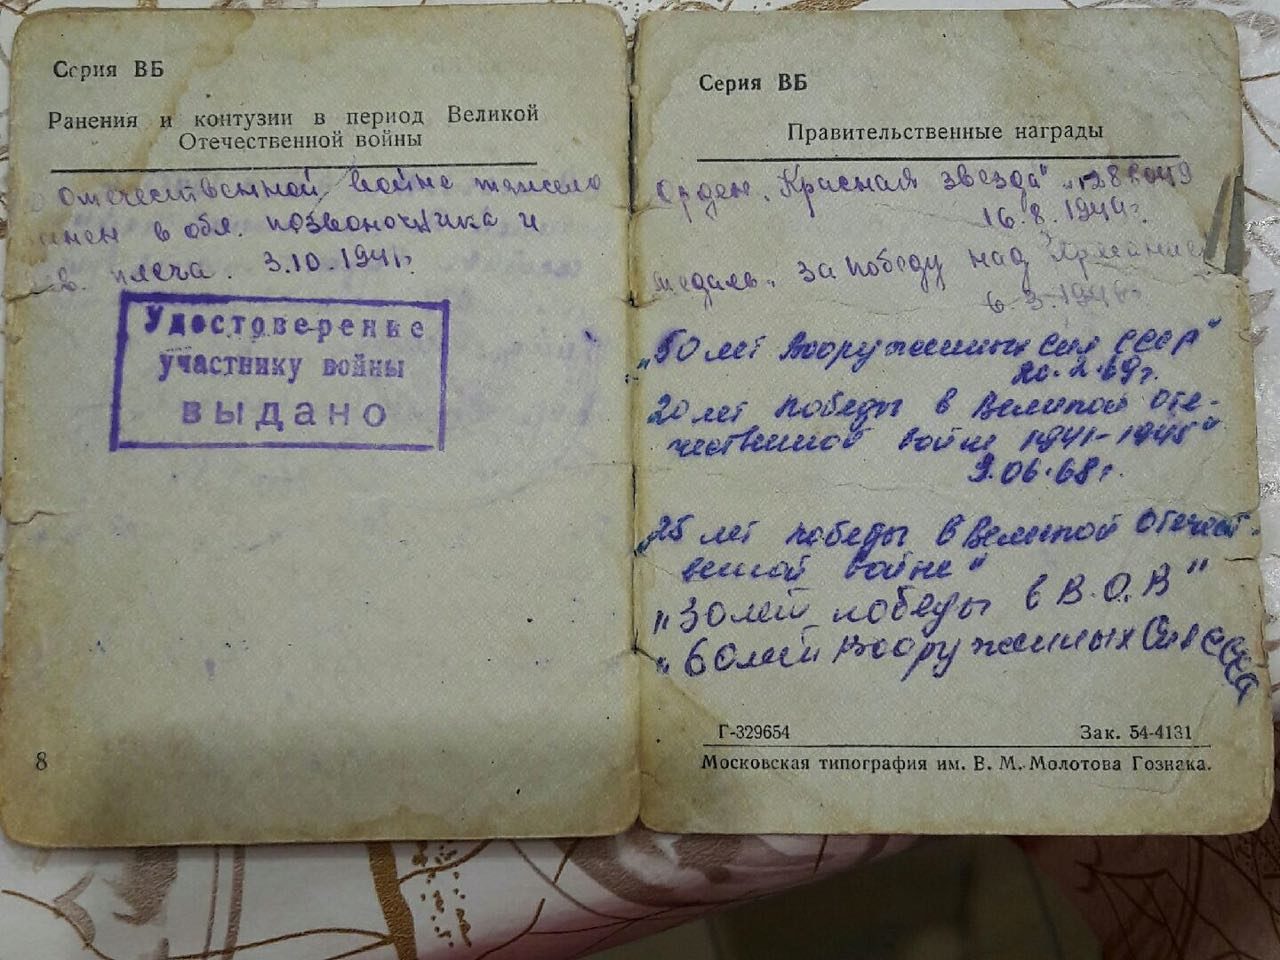 Серия ВБ
Ранения и контузии в период Великой
Отечественной войны
Отечественной войне тяжело
в обл. позвоночника и
плеча. 3.10.1941г.
Удостоверение
участнику войны
выдано
8
Серия ВБ
Правительственные награды
Орден „Красная звезда"
16.8.1944г.
медаль „За победу над Германией
„50 лет Вооруженных Сил СССР"
20.2.69г.
20 лет победы в Великой Оте-
чественной войне 1941-1945"
9.06.68г.
„25 лет победы в Великой Отечест-
венной войне"
"30 лет победы в В.О.В"
"60 лет Вооруженных Сил СССР
Г-329654
Зак. 54-4131
Московская типография им. В. М. Молотова Гознака.